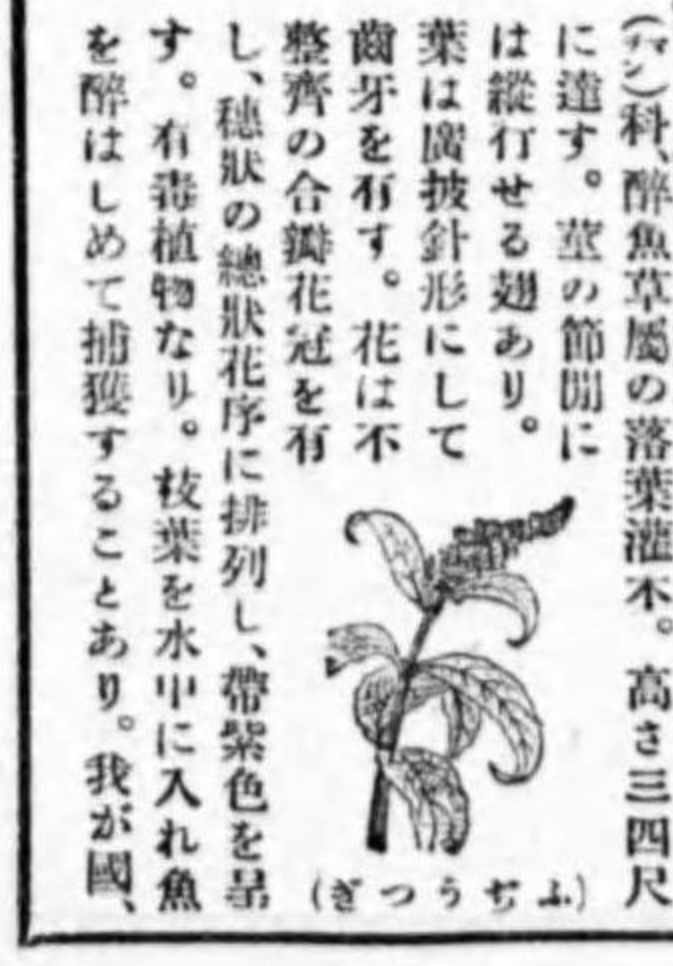 (マチン)科、醉魚草屬の落葉灌木。高さ三四尺
に達す。莖の節間に
は縱行せる翅あり。
葉は廣披針形にして
齒牙を有す。花は不
整齊の合瓣花冠を有
し、穗狀の總狀花序に排列し、帶紫色を呈
す。有毒植物なり。枝葉を水中に入れ魚
を醉はしめて捕獲することあり。我が國、
(ふぢうつぎ)